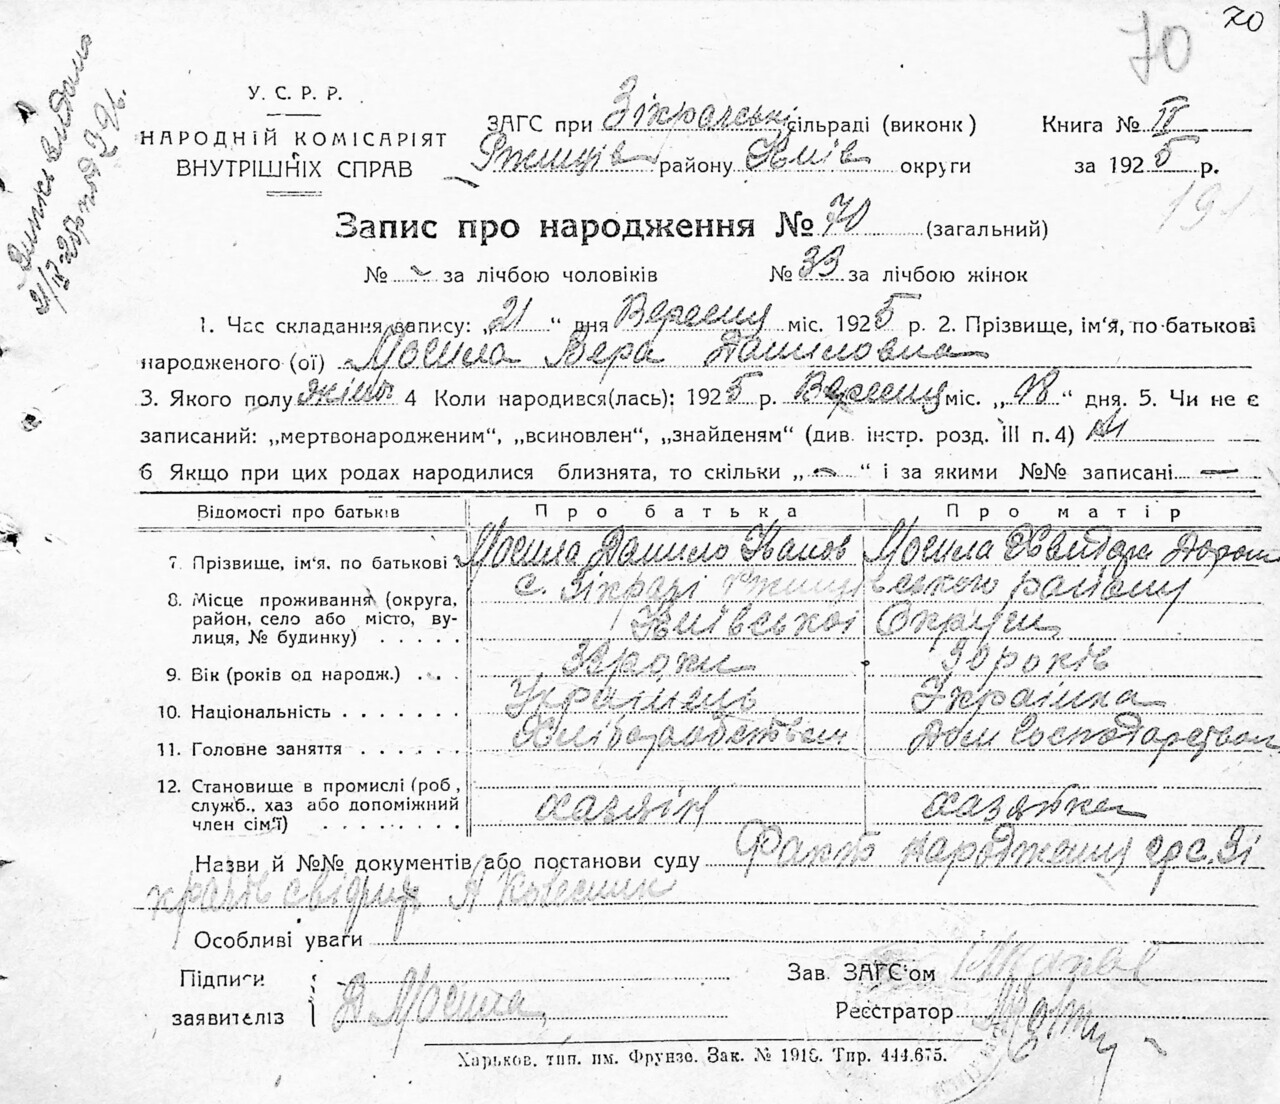 70
70
У. С. Р. Р.
НАРОДНІЙ КОМІСАРІЯТ
ВНУТРІШНІХ СПРАВ
ЗАГС при Зікрачські сільраді (виконк)
Ржищів району Київ округи
Книга № II
за 1925 р.
Запис про народження № 70 (загальний)
№ - за лічбою чоловіків № 33 за лічбою жінок
1. Час складання запису: „21“ дня Вересня міс. 1925 р. 2. Прізвище, ім'я, по-батькові
народженого (ої) Мосила Вера Даниловна
3. Якого полу жіно 4 Коли народився(лась): 1925 р. Вересня міс. „18“ дня. 5. Чи не є
записаний: „мертвонародженим“, „всиновлен“, „знайденям“ (див. інстр. розд. III п. 4) ні
6 Якщо при цих родах народилися близнята, то скільки „-“ і за якими №№ записані -
Відомості про батьків Про батька Про матір
7. Прізвище, ім'я. по батькові Мосила Данило Іванов Мосила
8. Місце проживання (округа, с. Зікрачі Ржищівського району
район, село або місто, ву- Київської Округи
лиця, № будинку) . . . . .
9. Вік (років од народж.) . . . роки 30 років
10. Національність . . . . . . . Українець Українка
11. Головне заняття . . . . . . Хліборобством Дом Господарством
12. Становище в промислі (роб,
служб., хаз або допоміжний хазяїн хазяйка
член сім'ї) . . . . . . . .
Назви й №№ документів або постанови суду Факт народження гр. с. Зі
крачів свідчив А Колесник
Особливі уваги
Підписи Зав. ЗАГС'ом
заявителіз Д Мосила Реєстратор
Харьков, тип. им. Фрунзе. Зак. № 1918. Тир. 444.675.